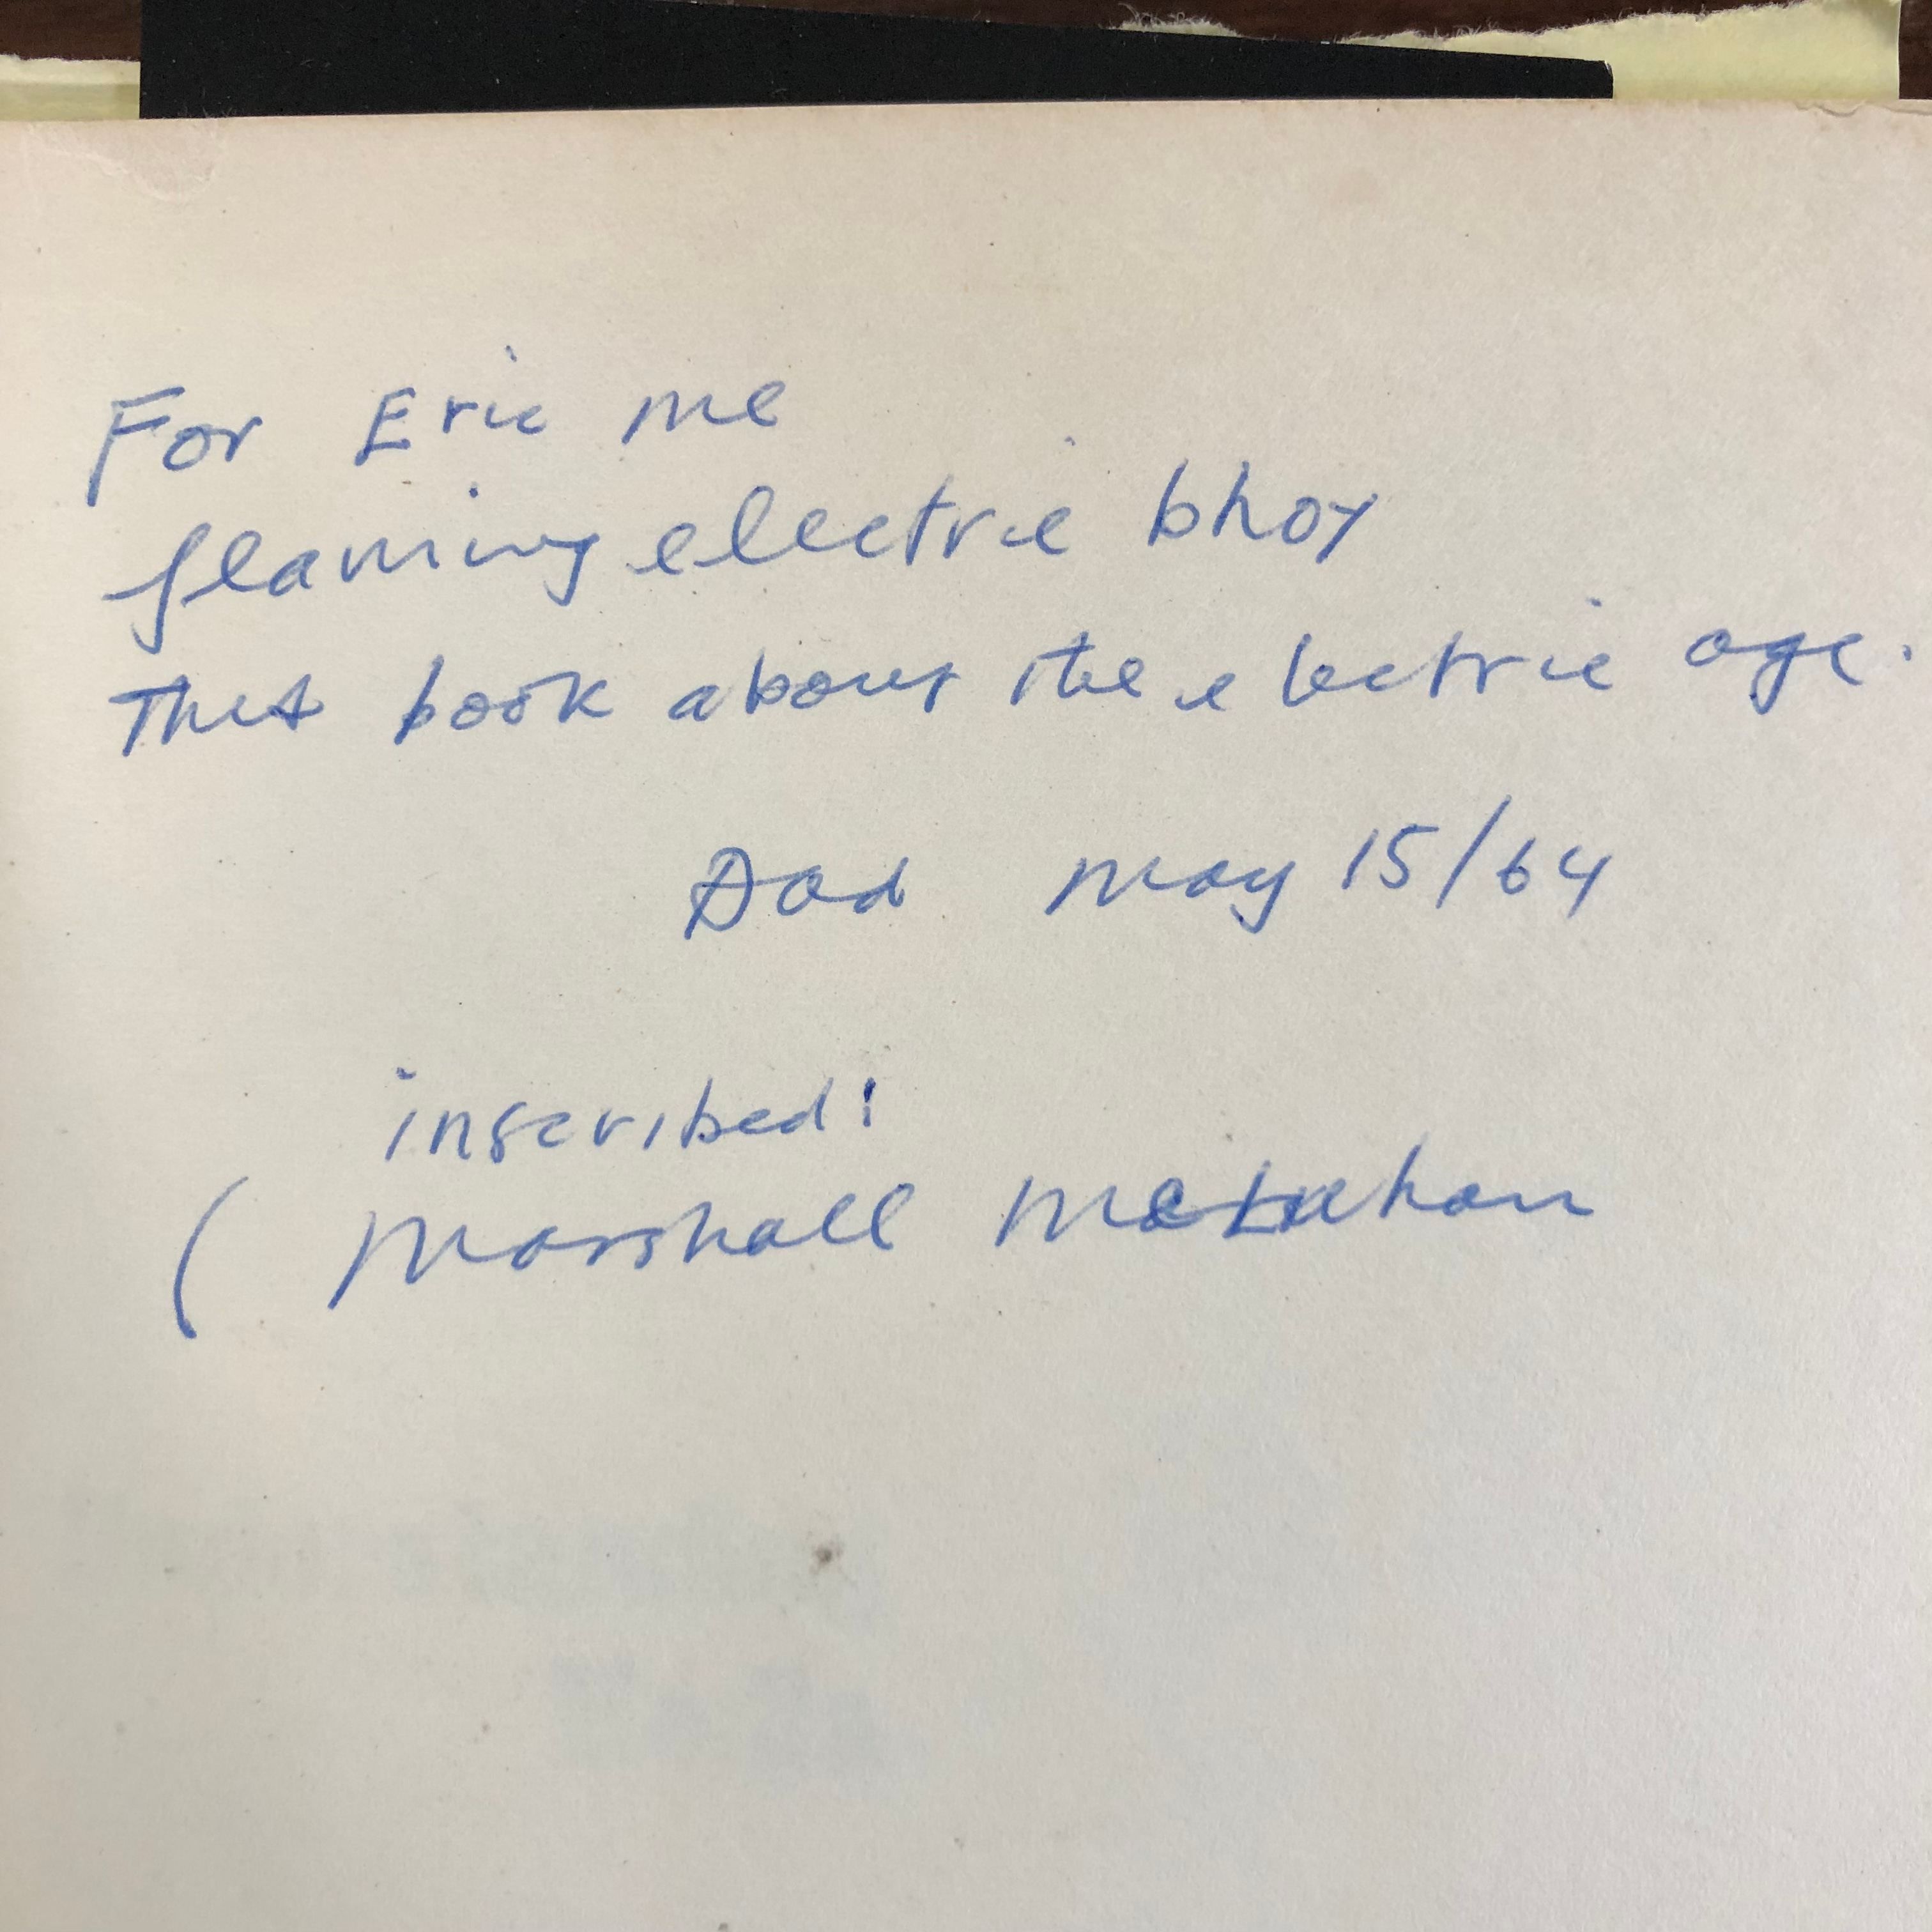 For Eric me
flaming electric bhoy
This book about the electric age.
Dad May 15/64
inscribed:
( Marshall McLuhan